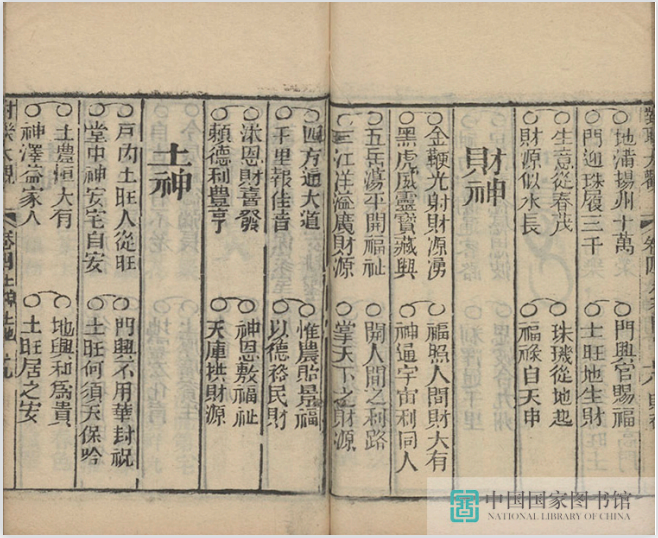 地滿揚州十萬
門興官賜福
門迎珠履三千
土旺地生財
生意從春茂
珠璣從地起
財源似水長
福祿自天申
財神
金鞭光射財源湧
福照人間財大有
黑虎威靈寶藏興
神通宇宙利同人
五岳蕩平開福祉
開人間之利路
三江洋溢廣財源
掌天下之財源
四方通大道
惟農貽景福
千里報佳音
以德務民財
沐恩財喜發
神恩敷福祉
頼德利豊亨
天庫拱財源
土神
戸內土旺人從旺
門興不用華封祝
堂中神安宅自安
土旺何須天保吟
土豊恒大有
地興和爲貴
神澤益家人
土旺居之安
卷四 土神
中国国家图书馆
NATIONAL LIBRARY OF CHINA